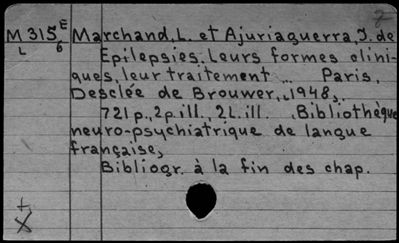 M 315 E Marchand, L. et Ajuriaguerra, J. de
L 6 Epilepsies. Leurs formes clini-
ques, leur traitement ... Paris,
Desclée de Brouwer, 1948,.
721 p., 2 p. ill., 2 L. ill. (Bibliothèque
neuro-psychiatrique de langue
française,
Bibliogr. à la fin des chap.